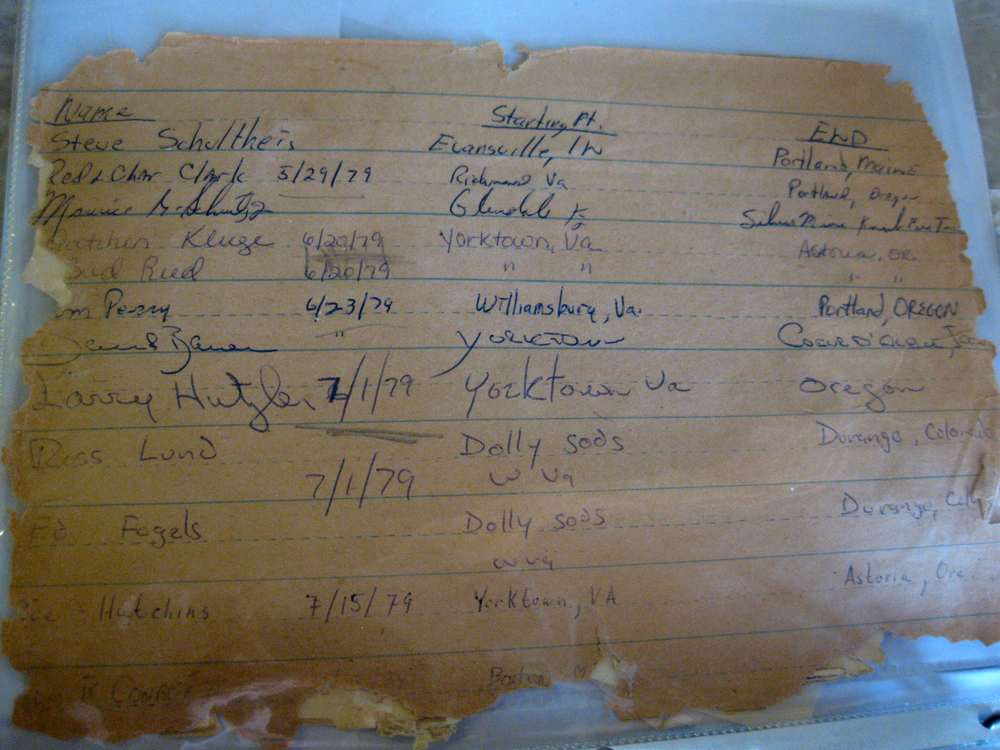 Name Starting Pt. END
Steve Schultheis Evansville, IN Portland, Maine
Red & Char Clark 5/29/79 Richmond, Va Portland, Oregon
Maurice Glendale Ky
Kluge 6/20/79 Yorktown, Va Astoria, OR.
Reed 6/20/79 " " " "
Perry 6/23/79 Williamsburg, Va. Portland, OREGON
David " Yorktown
Larry 7/1/79 Yorktown Va Oregon
Ross Lund Dolly Sods Durango, Colorado
7/1/79 W Va
Ed Fogels Dolly Sods Durango,
W Va
Hutchins 7/15/79 Yorktown, VA Astoria, Ore
Boston